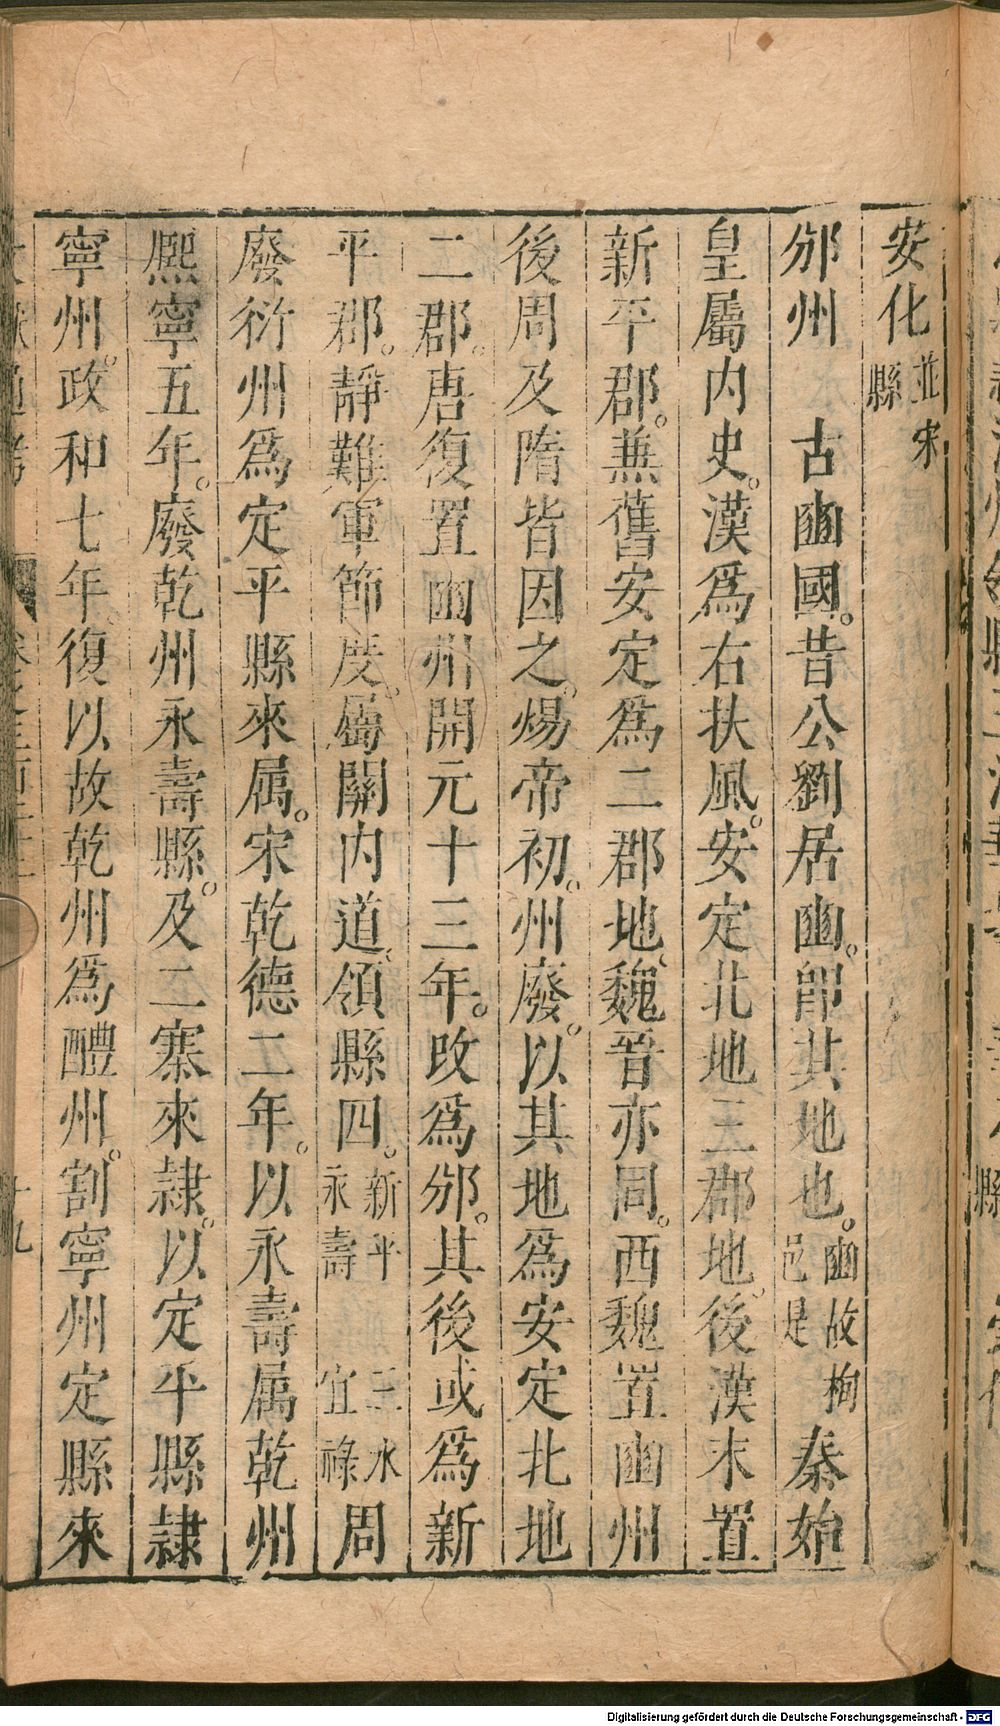 安化並宋縣
邠州　古豳國。昔公劉居豳。即其地也。豳故栒邑是秦始
皇屬内史。漢爲右扶風。安定北地三郡地。後漢末置
新平郡。兼舊安定爲二郡地。魏晉亦同。西魏置豳州
後周及隋皆因之。煬帝初。州廢。以其地爲安定北地
二郡。唐復置豳州開元十三年。改爲邠。其後或爲新
平郡。靜難軍節度。屬關内道。領縣四。新平　三水永壽　宜祿周
廢衍州爲定平縣來属。宋乾德二年。以永壽属乾州
熈寧五年。廢乾州永壽縣。及二寨來隷。以定平縣隷
寧州。政和七年。復以故乾州爲醴州。割寧州定縣來
Digitalisierung gefördert durch die Deutsche Forschungsgemeinschaft - DFG